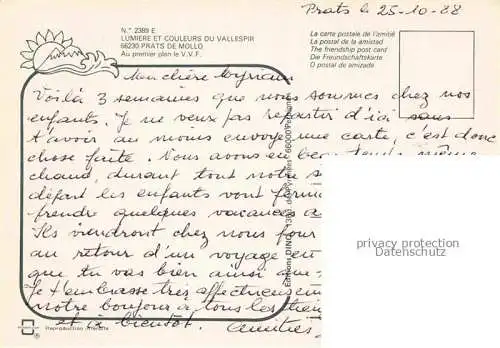 Prats le 25-10-88
N.° 2389 E
LUMIERE ET COULEURS DU VALLESPIR
66230 PRATS DE MOLLO
Au premier plan le V.V.F.
La carte postale de l'amitié
La postal de la amistad
The friendship post card
Die Freundschaftskarte
O postal de amizade
Ma chère Myriam
Voilà 3 semaines que nous sommes chez nos
enfants. Je ne veux pas repartir d'ici sans
t'avoir au moins envoyé une carte, c'est donc
chose faite. Nous avons eu beau temps, même
chaud, durant tout notre s
départ les enfants vont ferm
prendre quelques vacances a
Ils viendront chez nous pour
au retour d'un voyage en
que tu vas bien ainsi que
Je t'embrasse très affectueusemen
notre bonjour à tous les tien
et à bientôt.
Editions DINO
66000 Perpignan
privacy protection
Datenschutz
Reproduction interdite